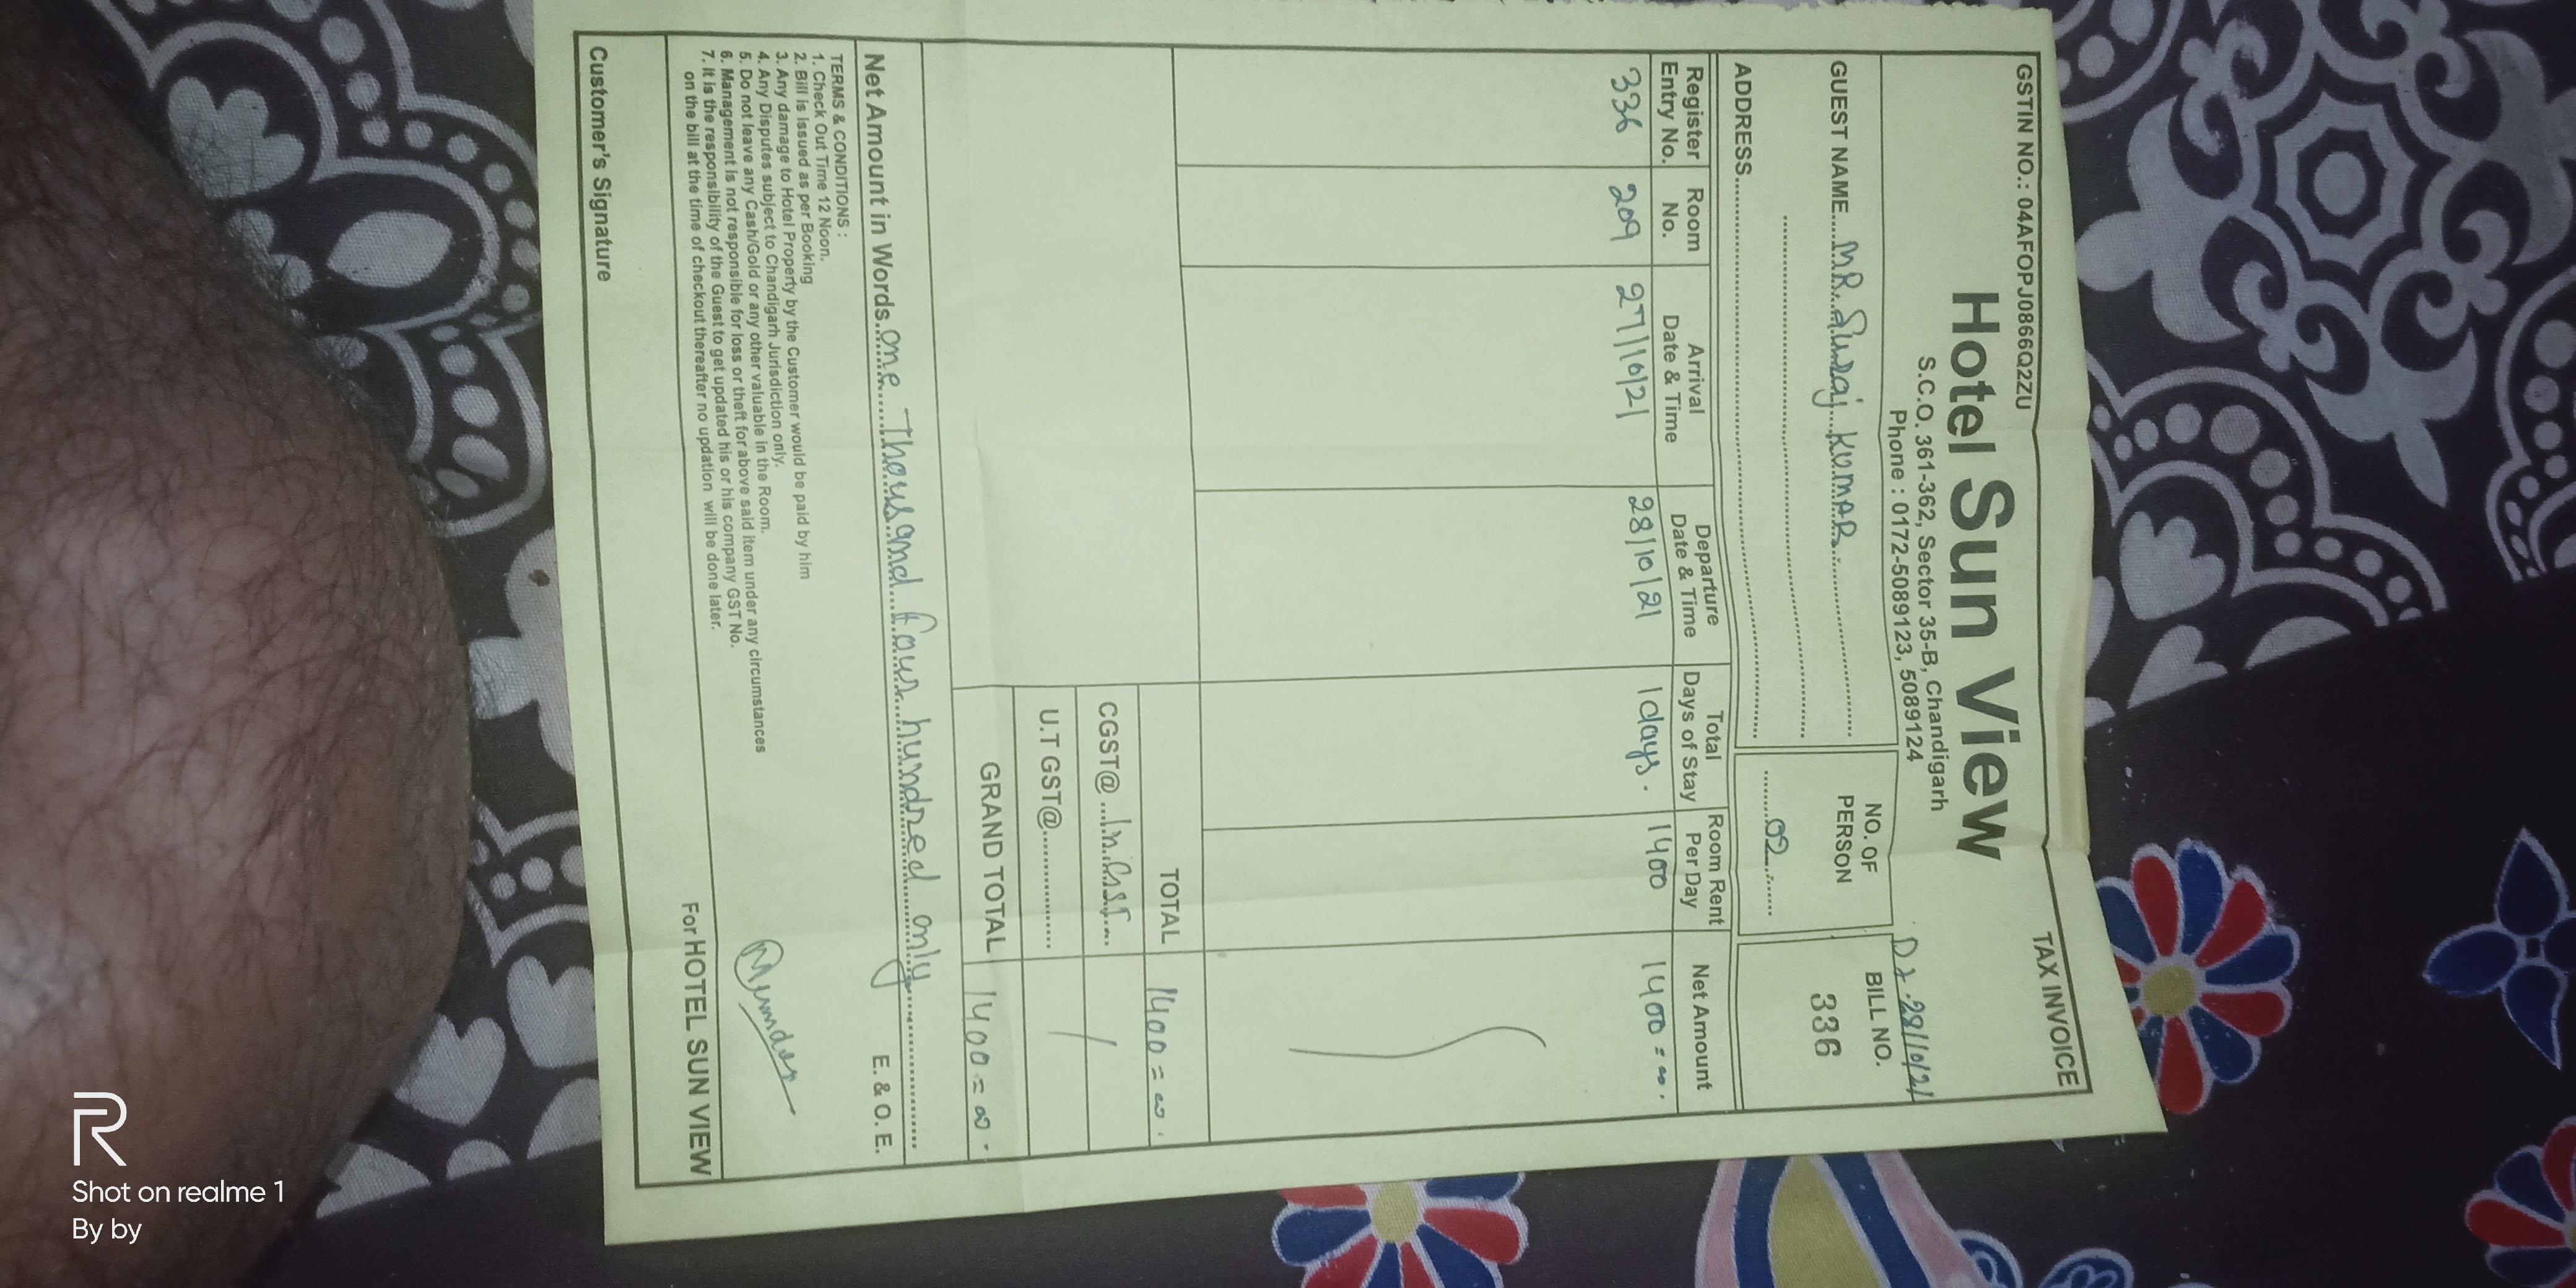 GSTIN NO.: 04AFOPJ0866Q2ZU TAX INVOICE
Hotel Sun View
S.C.O. 361-362, Sector 35-B, Chandigarh
Phone : 0172-5089123, 5089124
Dt. 28/10/21
GUEST NAME....MR. Suraj KUMAR
NO. OF PERSON
02
BILL NO.
336
ADDRESS
Register Entry No. Room No. Arrival Date & Time Departure Date & Time Total Days of Stay Room Rent Per Day Net Amount
336 209 27/10/21 28/10/21 1 days. 1400 1400 = 00.
TOTAL 1400 = 00.
CGST@
U.T GST@
GRAND TOTAL 1400 = 00.
Net Amount in Words..one Thousand four hundred only
E. & O. E.
TERMS & CONDITIONS :
1. Check Out Time 12 Noon.
2. Bill is issued as per Booking
3. Any damage to Hotel Property by the Customer would be paid by him
4. Any Disputes subject to Chandigarh Jurisdiction only.
5. Do not leave any Cash/Gold or any other valuable in the Room.
6. Management is not responsible for loss or theft for above said item under any circumstances
7. It is the responsibility of the Guest to get updated his or his company GST No.
on the bill at the time of checkout thereafter no updation will be done later.
For HOTEL SUN VIEW
Customer's Signature
R
Shot on realme 1
By by